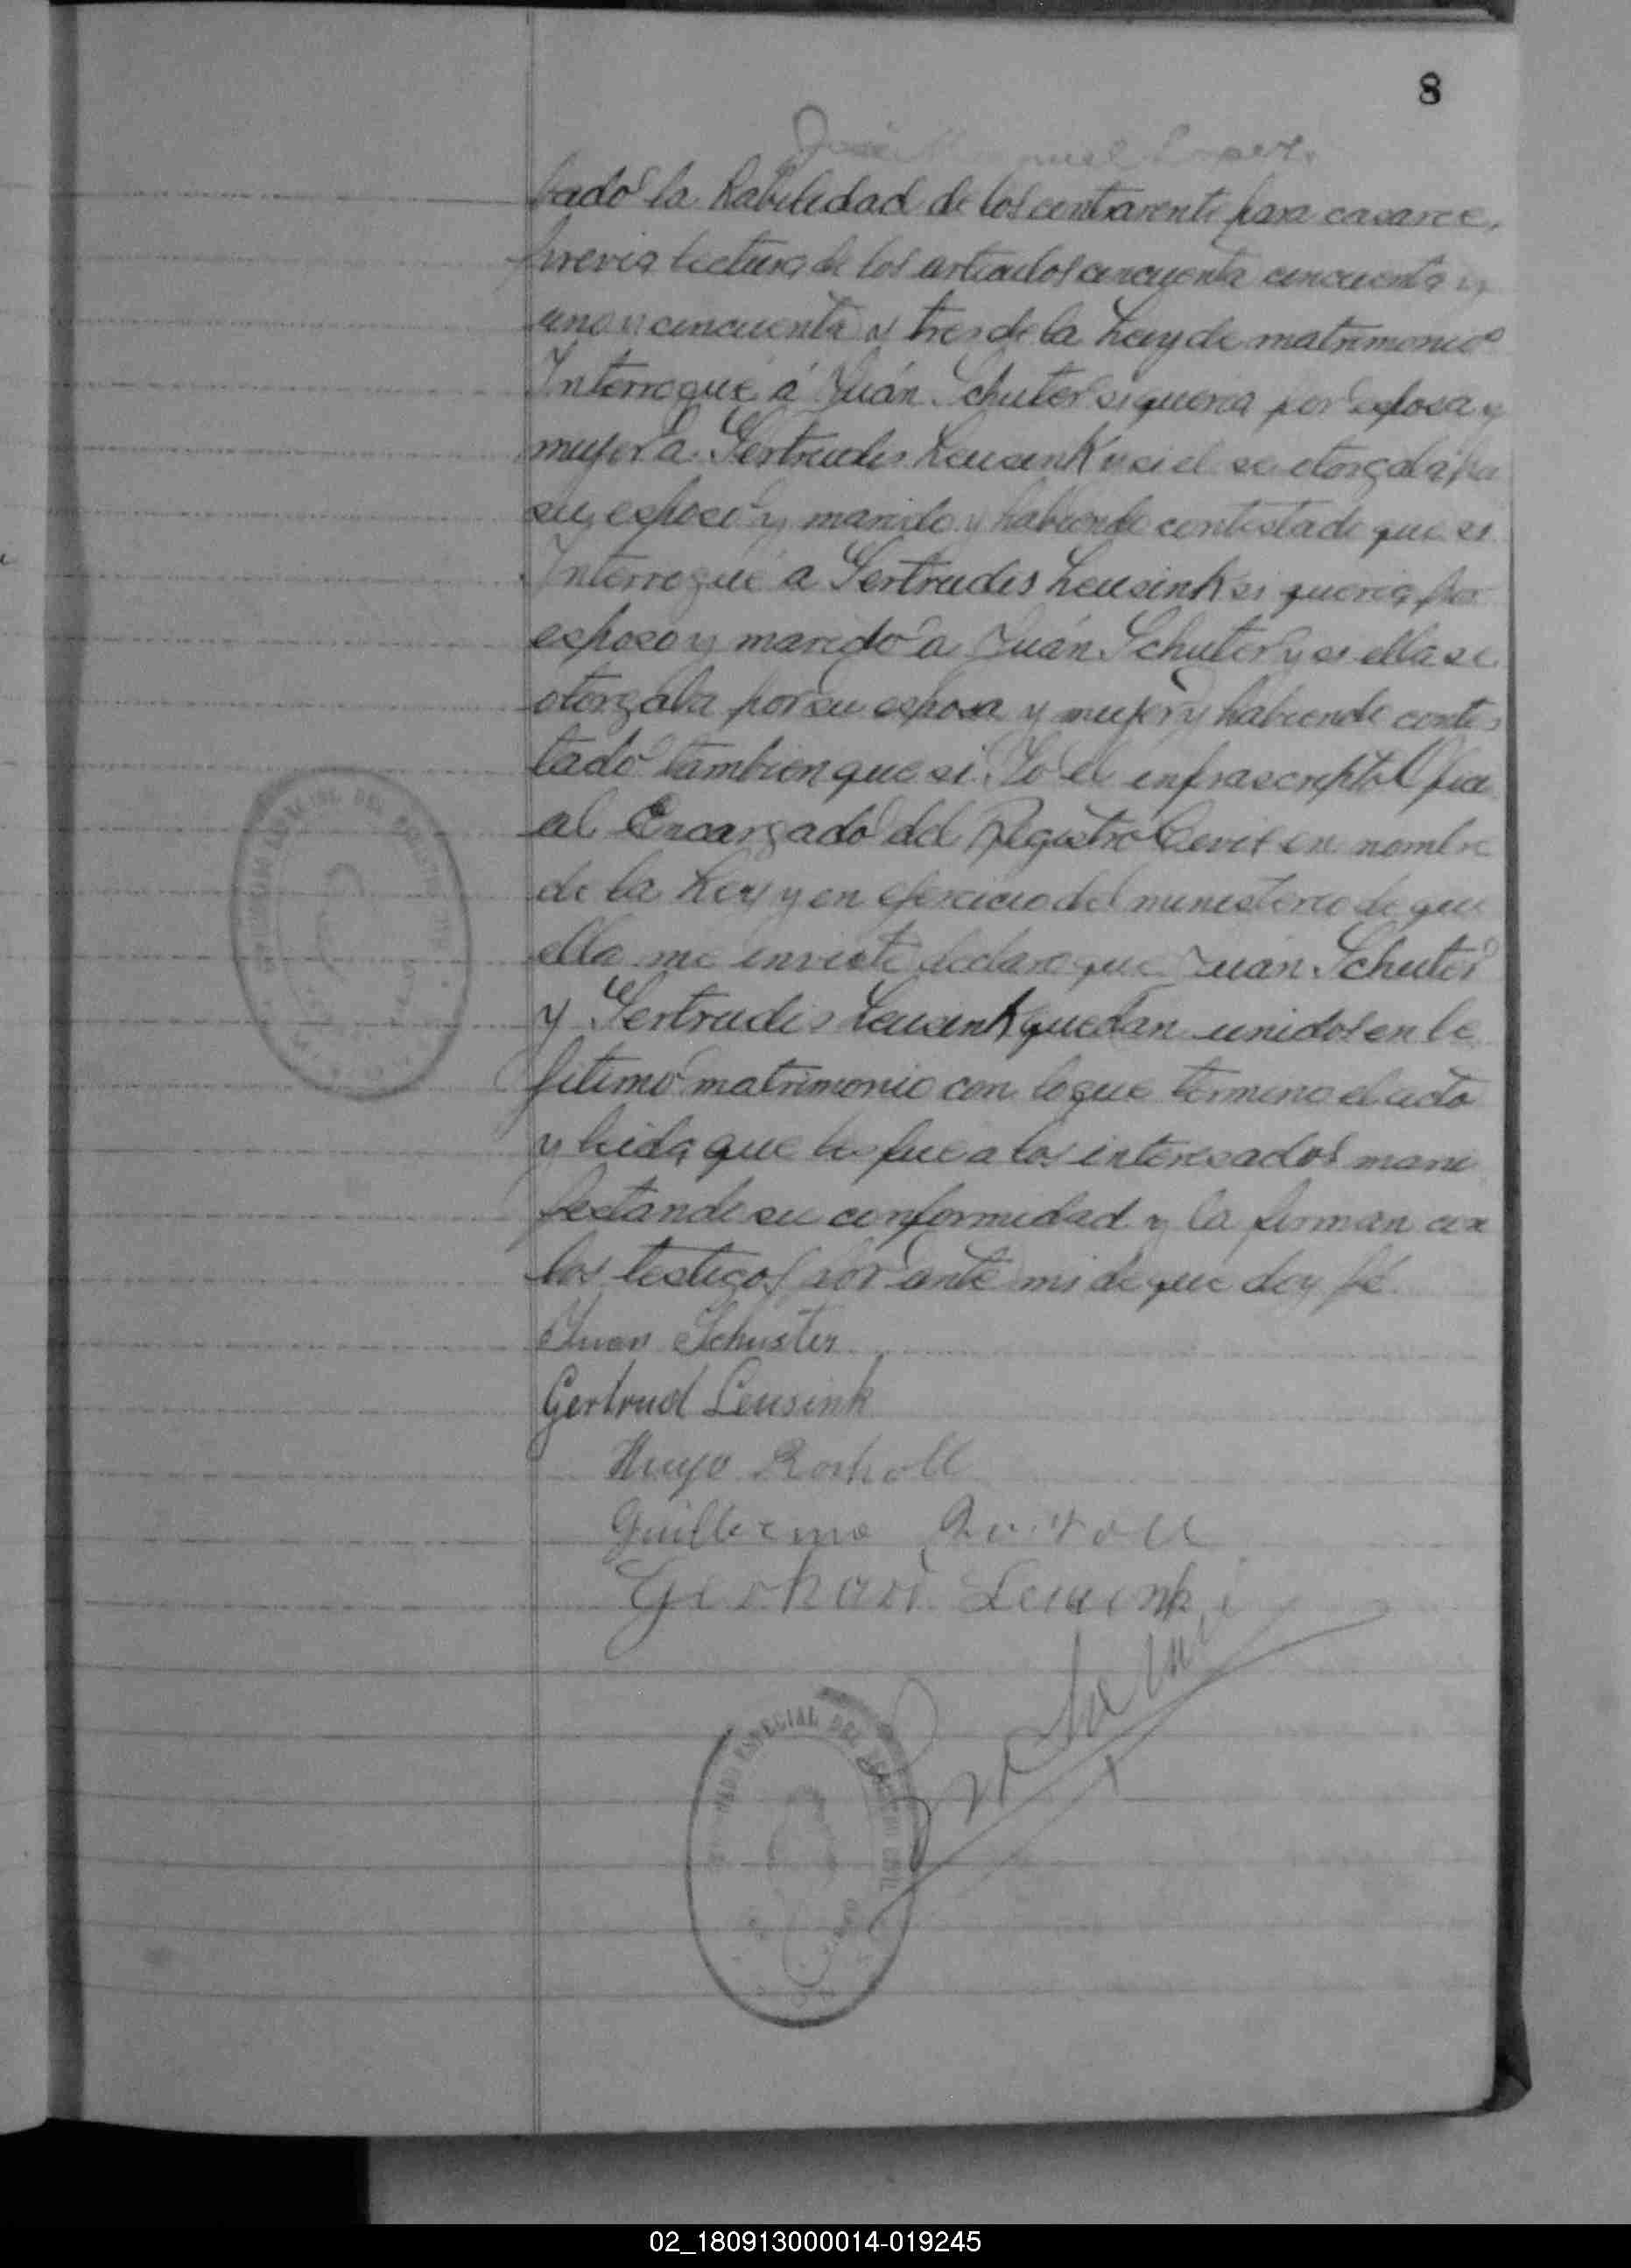 8
José Lopez
bado la habiledad de los contrarente para casarce,
previa lectura de los articulos cincuenta cincuenta y
uno y cincuenta y tres de la Ley de matrimonio
Interrogué á Juán Schuter si queria por esposa y
mujer a Gertrudis Leusink y si el se otorgaba por
su esposo y marido y habiendo contestado que si
Interrogué a Gertrudis Leusink si queria por
esposo y marido a Juán Schuter y si ella se
otorgaba por su esposa y mujer y habiendo contes
tado tambien que si. Yo el infrascripto Ofici
al Encargado del Registro Cevil en nombre
de la Ley y en ejercicio del ministerio de que
ella me enviste declaro que Juán Schuter
y Gertrudis Leusink quedan unidos en le
jitimo matrimonio con lo que termino el acto
y leida que les fue a los interesados mani
festando su conformidad y la firman con
los testigos por ante mi de que doy fé.
Juan Schuster
Gertrud Leusink
Hugo Rosholl
Guillermo
Gerhard Leusink
ESPECIAL DEL REGISTRO CIVIL
02_180913000014-019245